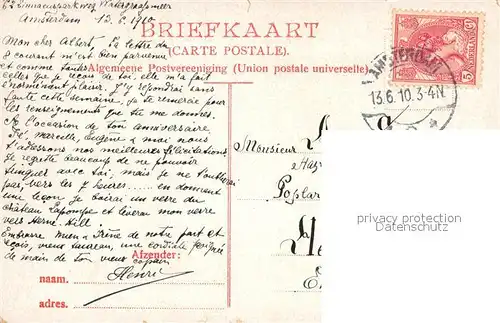 62 Linnaeusparkweg, Watergraafsmeer
Amsterdam 12.6.1910
BRIEFKAART
(CARTE POSTALE)
Algemeene Postvereeniging (Union postale universelle)
5
AMSTERDAM
13.6.10.3-4N
Mon cher Albert, Ta lettre du
8 courant m'est bien parvenue
et comme toutes
celles que je reçois de toi, elle m'a fait
énormément plaisir. J'y répondrai sans
faute cette semaine, je te remercie pour
les renseignements que tu me donnes.
A l'occasion de ton anniversaire
Fé, Marcelle, Eugène & moi nous
t'adressons nos meilleures félicitations.
Je regrette beaucoup de ne pouvoir
avec toi, mais je ne t'oublierai
pas, vers les 7 heures en donnant
une leçon je boirai un verre du
château Lapompe et lèverai mon verre
vers Herne-Hill.
Embrasse Mien & Irène de notre part et
reçois, vieux taureau, une cordiale poignée
de main de ton vieux copain
Henri
Monsieur
Postar
Afzender:
naam.
adres.
privacy protection
watermark